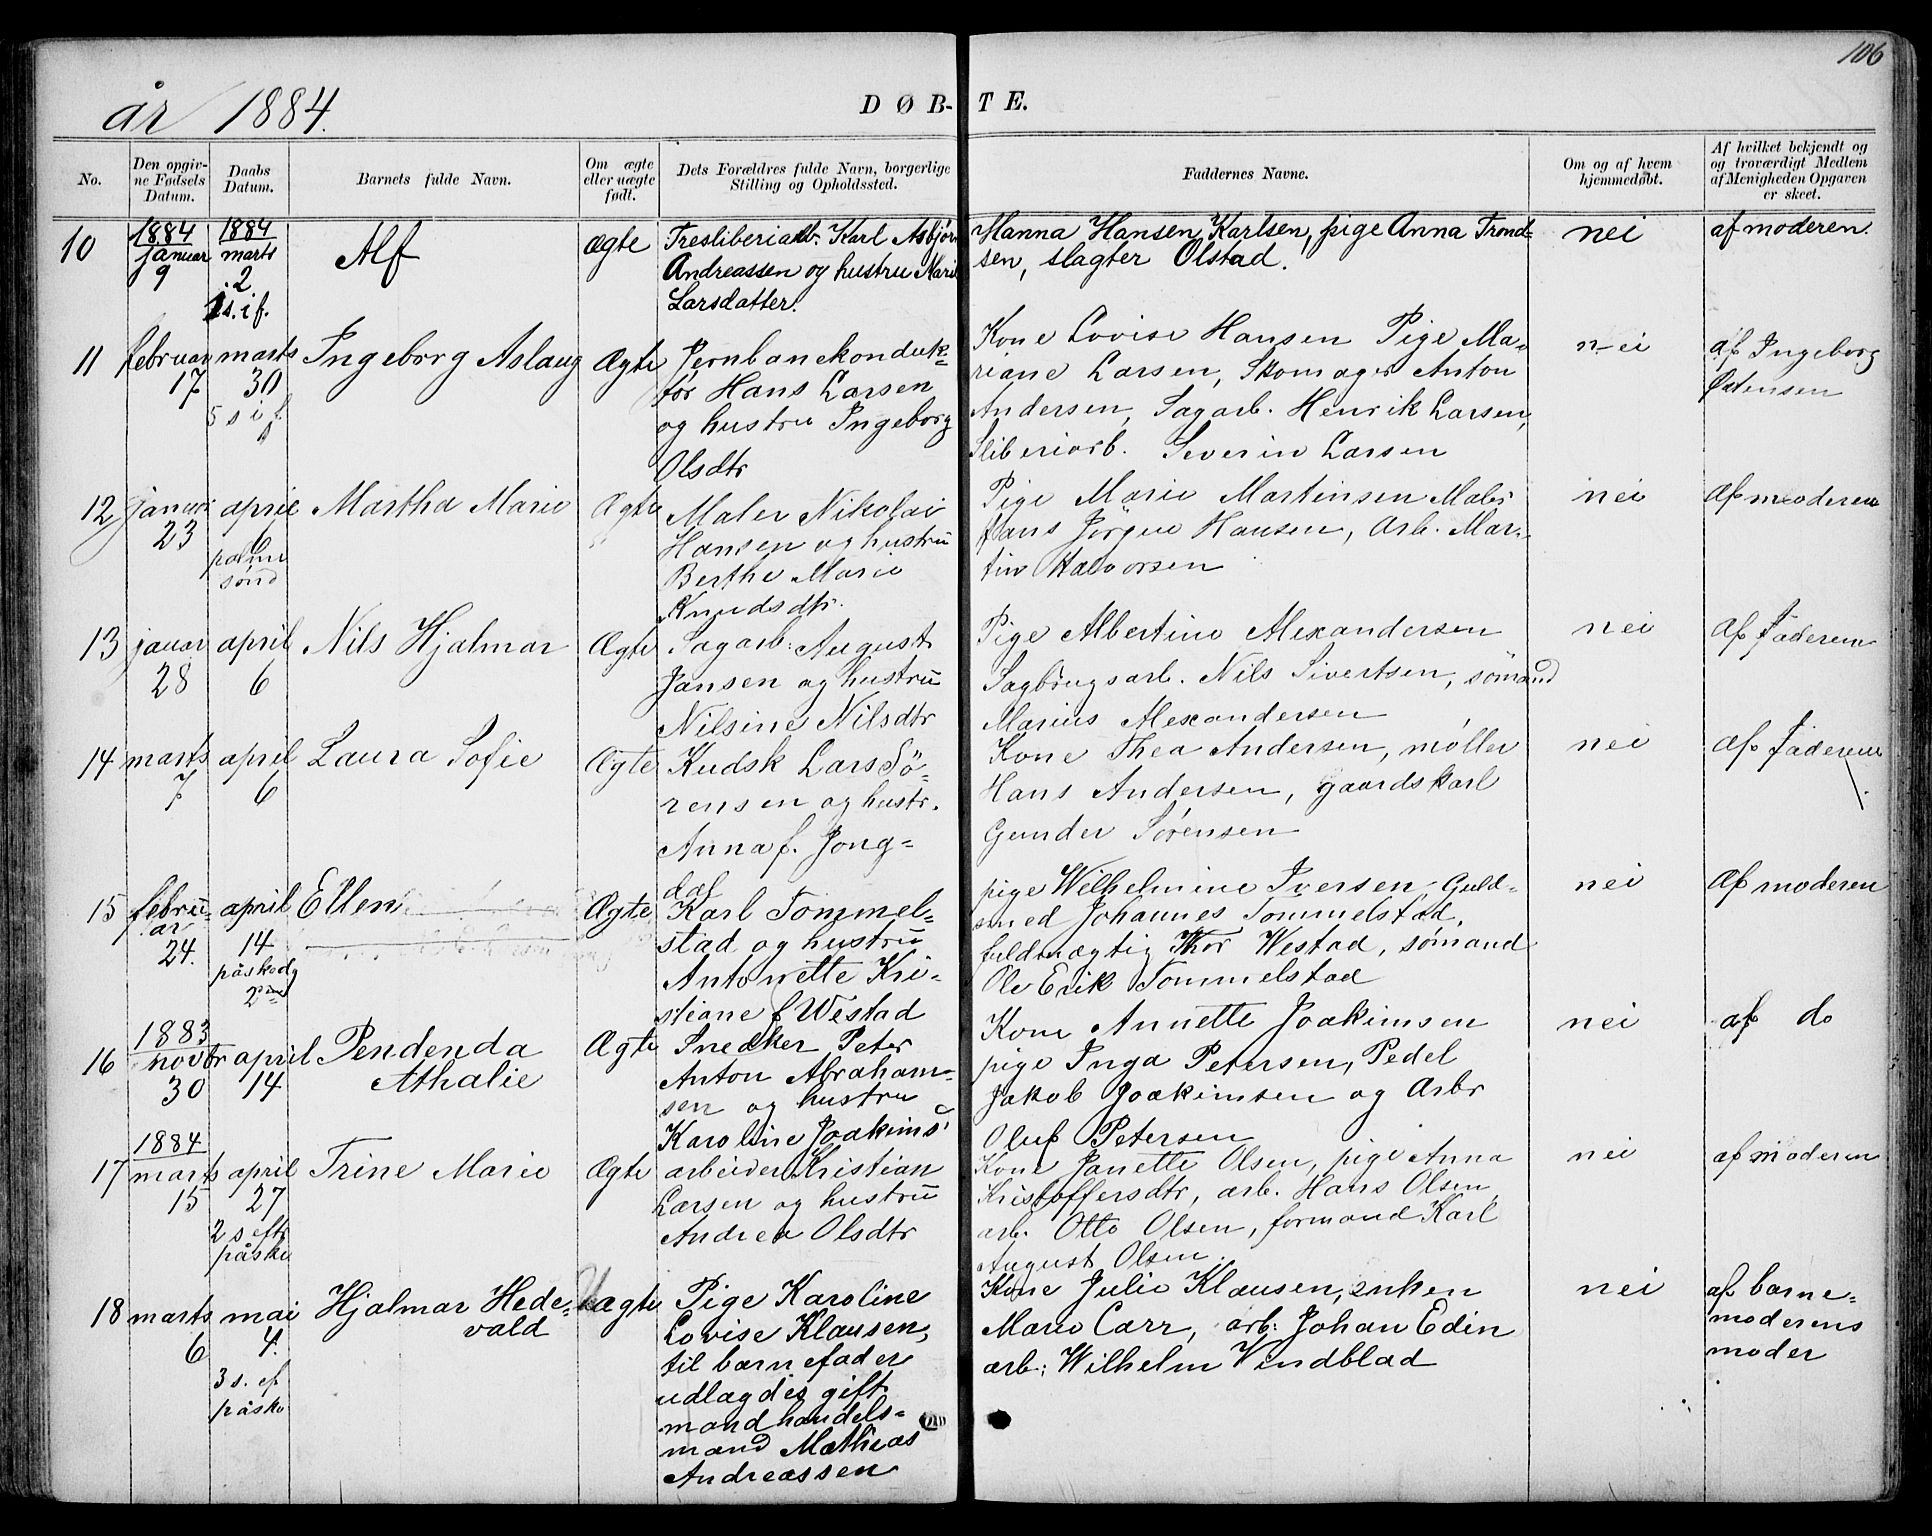 106
år 1884.
DØB-TE.
No.
Den opgiv-
ne Fødsels
Datum.
Daabs
Datum.
Barnets fulde Navn.
Om ægte
eller uægte
født.
Dets Forældres fulde Navn, borgerlige
Stilling og Opholdssted.
Faddernes Navne.
Om og af hvem
hjemmedøbt.
Af hvilket bekjendt og
og troværdigt Medlem
af Menigheden Opgaven
er skeet.
10
1884
januar
9
1884
marts
2
1 s. i f.
Alf
Ægte
Tresliberiarb. Karl Asbjørn
Andreassen og hustru Marie
Larsdatter.
Hanna Hansen Karlsen, pige Anna Trond-
sen, slagter Olstad.
nei
af moderen.
11
februar
17
marts
30
5 s i f.
Ingeborg Aslaug
Ægte
Jernbanekonduk-
tør Hans Larsen
og hustru Ingeborg
Olsdtr
Kone Lovise Hansen Pige Ma-
riane Larsen, Skomager Anton
Andersen, Sagarb. Henrik Larsen,
Sliberiarb. Severin Larsen
nei
af Ingeborg
Østensen
12
januar
23
april
6
palme
sønd
Martha Marie
Ægte
Maler Nikolai
Hansen og hustru
Berthe Marie
Knudsdtr.
Pige Marie Martinsen Maler
Hans Jörgen Hansen, Arb. Mar-
tin Halvorsen
nei
af moderen
13
januar
28
april
6
Nils Hjalmar
Ægte
Sagarb: August
Jansen og hustru
Nilsine Nilsdtr
Pige Albertine Alexandersen
Sagbrugsarb. Nils Sivertsen, sömand
Marius Alexandersen
nei
af faderen
14
marts
7
april
6
Laura Sofie
Ægte
Kudsk Lars Sö-
rensen og hustr.
Anna f. Jong-
dal
Kone Thea Andersen, møller
Hans Andersen, gaardskarl
Gunder Sørensen
nei
af faderen
15
febru-
ar
24.
april
14
påskedg
2den
Ellen
Ægte
Karl Tommel-
stad og hustru
Antonette Kri-
stiane f Westad
pige Wilhelmine Iversen, Guld-
smed Johannes Tommelstad,
fuldmægtig Thor Westad, sømand
Ole Erik Tommelstad
nei
af moderen
16
1883
novbr
30
april
14
Pendenda
Athalie
Ægte
Snedker Peter
Anton Abraham-
sen og hustru
Karoline Joakims
Kone Annette Joakimsen
pige Inga Petersen, Pedel
Jakob Joakimsen og Arbr
Oluf Petersen
nei
af do
17
1884
marts
15
april
27
2 s eftr
påske
Trine Marie
Ægte
arbeider Kristian
Larsen og hustru
Andrea Olsdtr
Kone Janette Olsen, pige Anna
Kristoffersdtr, arb. Hans Olsen,
arb. Otto Olsen, formand Karl
August Olsen.
nei
af moderen
18
marts
6
mai
4.
3 s. ef
påske
Hjalmar Hede-
vald
Uægte
Pige Karoline
Lovise Klausen,
til barnefader
udlagdes gift
mand handels-
mand Mathias
Andreassen
Kone Julie Klausen, enken
Marie Carr, arb: Johan Edin
arb: Wilhelm Vindblad
nei
af barne-
moderens
moder